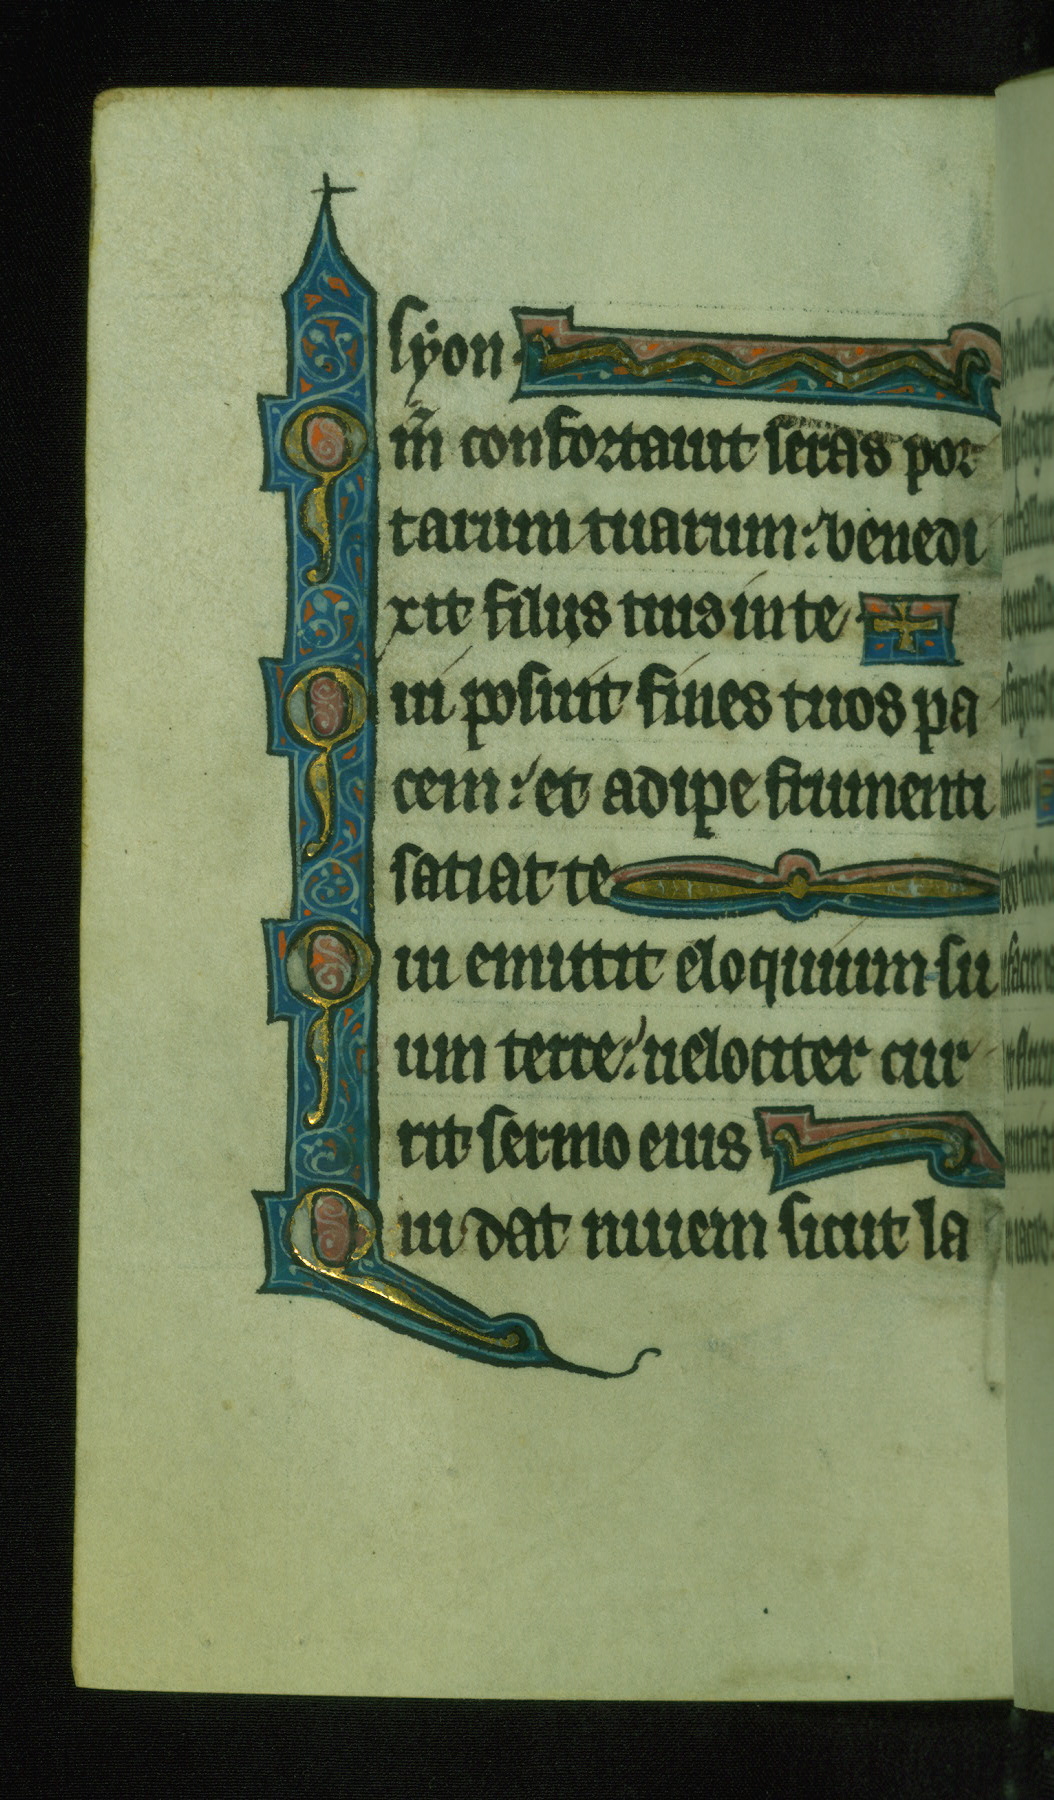 syon
Qm̄ confortauit seras por
tarum tuarum: benedi
xit filiis tuis in te
Qui posuit fines tuos pa
cem: et adipe frumenti
satiat te
Qui emittit eloquium su
um terre: uelociter cur
rit sermo eius
Qui dat niuem sicut la